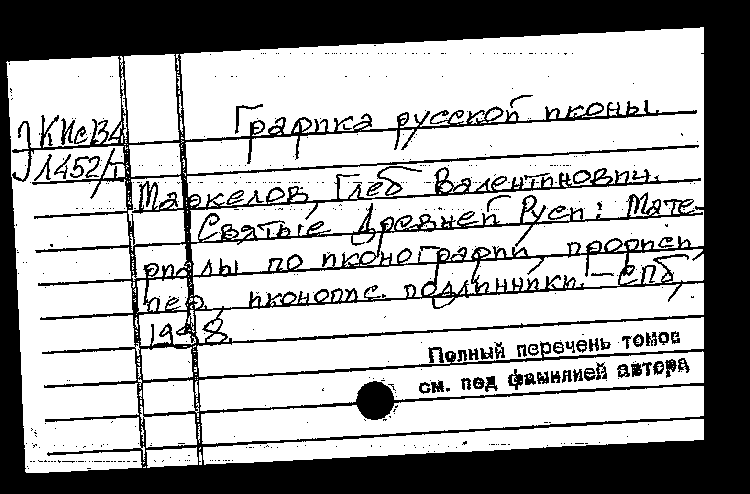 КИсВ4 Графика русской иконы.
1452/1
Маркелов, Глеб Валентинович.
Святые Древней Руси: Мате-
риалы по иконографии, прориси,
пер., иконопис. подлинники. – СПб,
1998.
Полный перечень томов
см. под фамилией автора